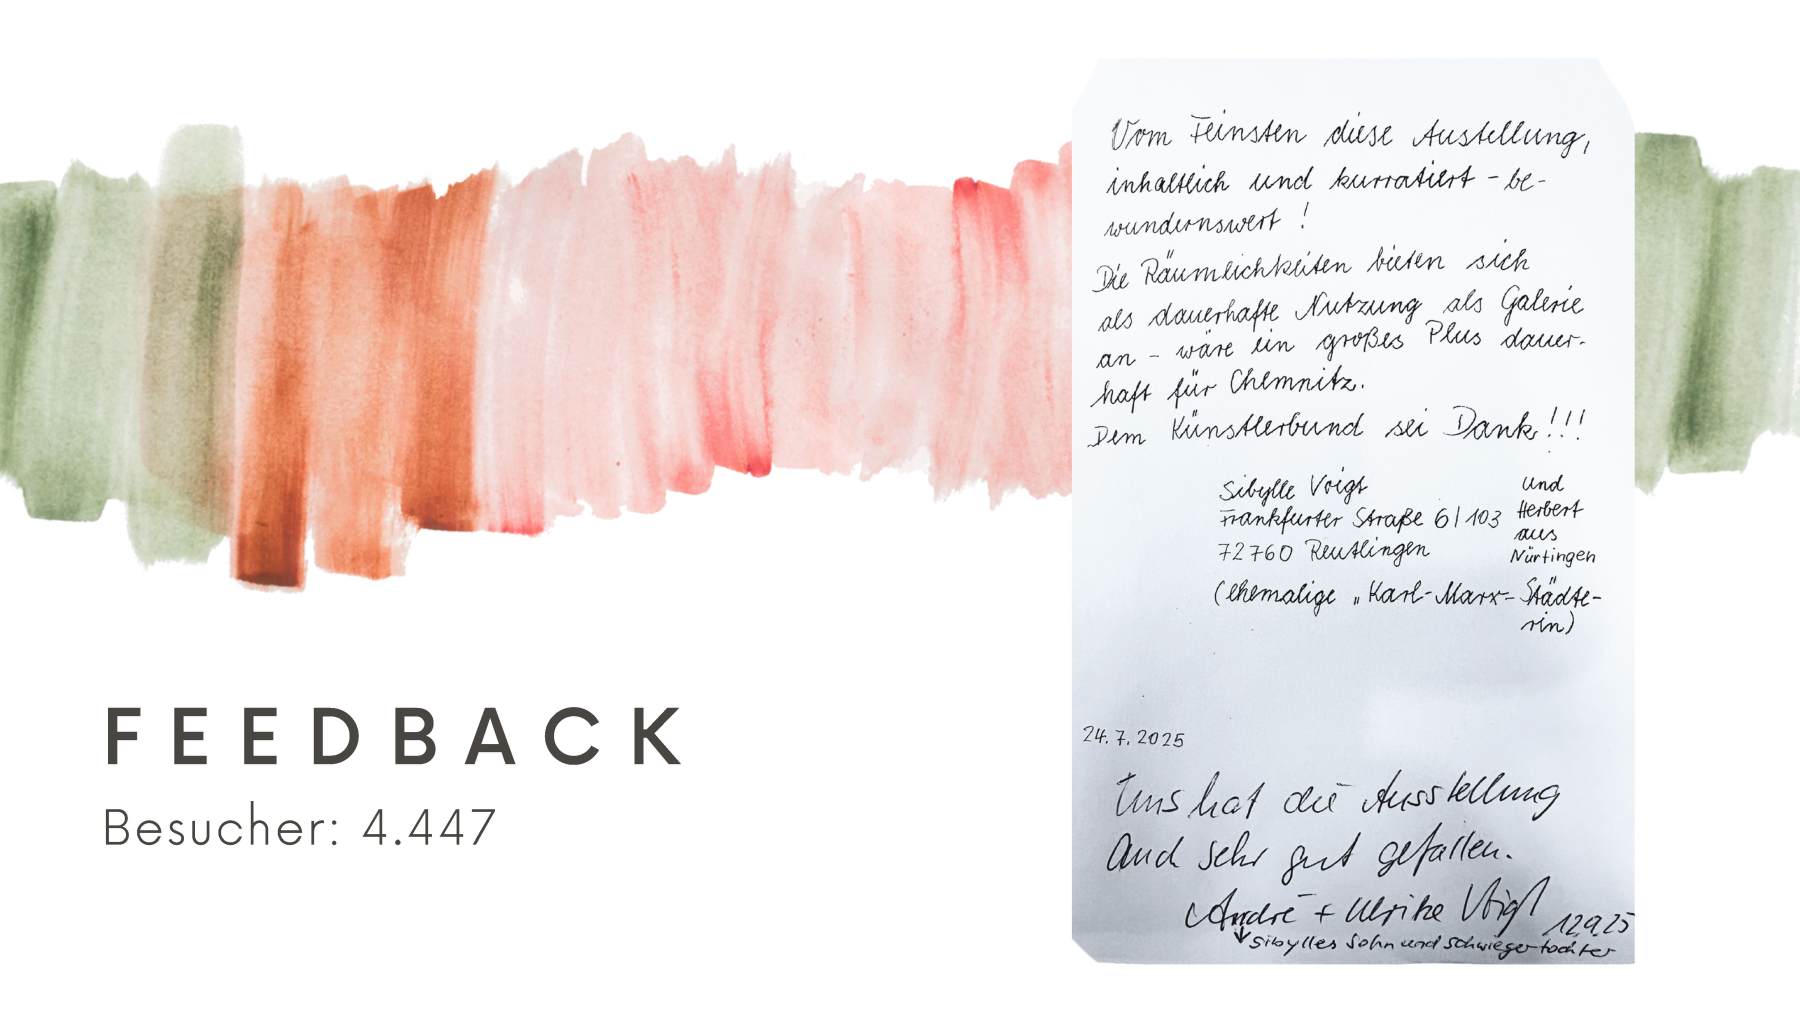 FEEDBACK
Besucher: 4.447
Vom Feinsten diese Austellung,
inhaltlich und kurratiert - be-
wundernswert !
Die Räumlichkeiten bieten sich
als dauerhafte Nutzung als Galerie
an - wäre ein großes Plus dauer-
haft für Chemnitz.
Dem Künstlerbund sei Dank !!!
Sibylle Voigt
Frankfurter Straße 6/103
72760 Reutlingen
und
Herbert
aus
Nürtingen
(ehemalige „Karl-Marx-Städte-
rin)
24.7.2025
Uns hat die Ausstellung
auch sehr gut gefallen.
André + Ulrike Voigt 12.9.25
Sibylles Sohn und Schwiegertochter